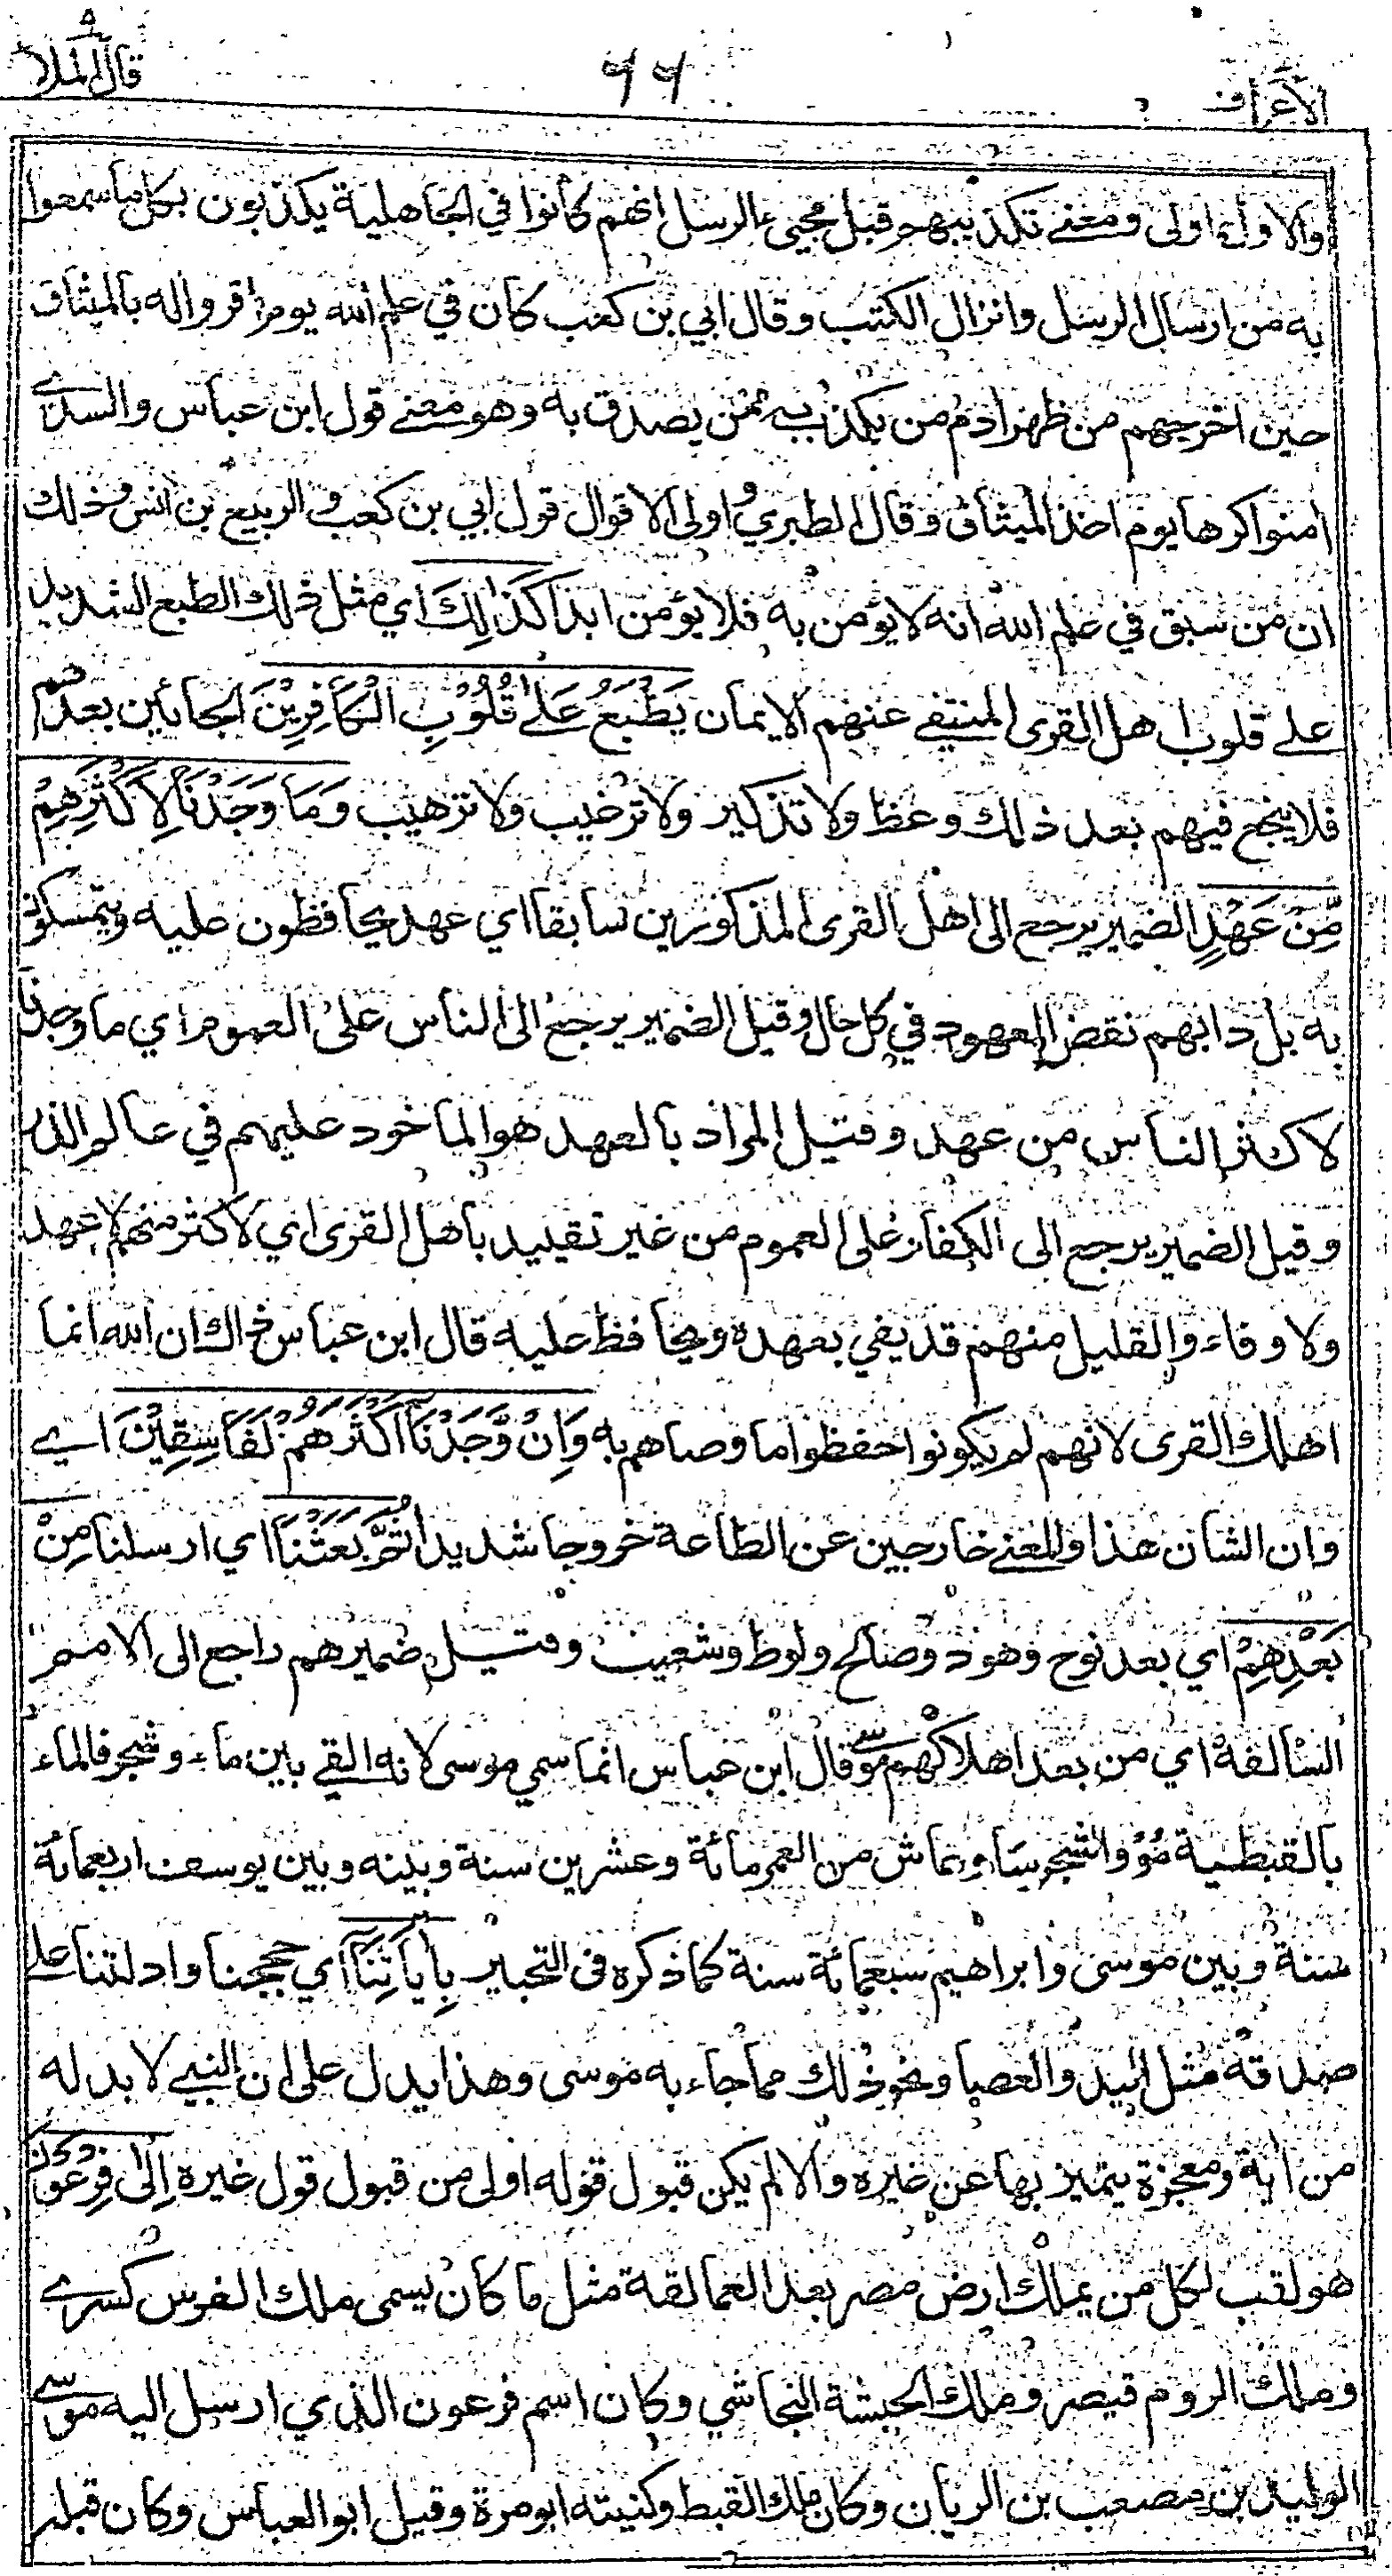 قال الملأ ٩
٦٦
الاعراف
والاول اولى ومعنى تكذيبهم قبل مجيء الرسل انهم كانوا في الجاهلية يكذبون بكل ما سمعوا
به من ارسال الرسل وانزال الكتب وقال ابي بن كعب كان في علم الله يوم اقروا له بالميثاق
حين اخرجهم من ظهر ادم من يكذب به ممن يصدق به وهو معنى قول ابن عباس والسدي
امنوا كرها يوم اخذ الميثاق وقال الطبري واولى الاقوال قول ابي بن كعب والربيع بن انس وذلك
ان من سبق في علم الله انه لا يؤمن به فلا يؤمن ابدا كَذٰلِكَ اي مثل ذلك الطبع الشديد
على قلوب اهل القرى المنتفي عنهم الايمان يَطْبَعُ عَلٰى قُلُوْبِ الْكَافِرِيْنَ الجائين بعدهم
فلا ينجع فيهم بعد ذلك وعظ ولا تذكير ولا ترغيب ولا ترهيب وَمَا وَجَدْنَا لِاَكْثَرِهِمْ
مِّنْ عَهْدٍ الضمير يرجع الى اهل القرى المذكورين سابقا اي عهد يحافظون عليه ويتمسكون
به بل دابهم نقض العهود في كل حال وقيل الضمير يرجع الى الناس على العموم اي ما وجدنا
لاكثر الناس من عهد وقيل المراد بالعهد هو الماخوذ عليهم في عالم الذر
وقيل الضمير يرجع الى الكفار على العموم من غير تقييد باهل القرى اي لاكثر منهم لا عهد
ولا وفاء والقليل منهم قد يفي بعهده ويحافظ عليه قال ابن عباس ذاك ان الله انما
اهلك القرى لانهم لم يكونوا حفظوا ما وصاهم به وَاِنْ وَّجَدْنَا اَكْثَرَهُمْ لَفَاسِقِيْنَ اي
وان الشان هذا والمعنى خارجين عن الطاعة خروجا شديدا ثُمَّ بَعَثْنَا اي ارسلنا مِنْ
بَعْدِهِمْ اي بعد نوح وهود وصالح ولوط وشعيب وقيل ضميرهم راجع الى الامم
السالفة اي من بعد اهلاكهم مُّوْسٰى قال ابن عباس انما سمي موسى لانه القي بين ماء وشجر فالماء
بالقبطية مُوْ والشجر سا وعاش من العمر مائة وعشرين سنة وبينه وبين يوسف اربعمائة
سنة وبين موسى وابراهيم سبعمائة سنة كما ذكره في التحبير بِاٰيَاتِنَا اي حججنا وادلتنا على
صدقه مثل اليد والعصا ونحو ذلك مما جاء به موسى وهذا يدل على ان النبي لا بد له
من اية ومعجزة يتميز بها عن غيره والا لم يكن قبول قوله اولى من قبول قول غيره اِلٰى فِرْعَوْنَ
هو لقب لكل من يملك ارض مصر بعد العمالقة مثل ما كان يسمى ملك الفرس كسرى
وملك الروم قيصر وملك الحبشة النجاشي وكان اسم فرعون الذي ارسل اليه موسى
الوليد بن مصعب بن الريان وكان ملك القبط وكنيته ابو مرة وقيل ابو العباس وكان قبله